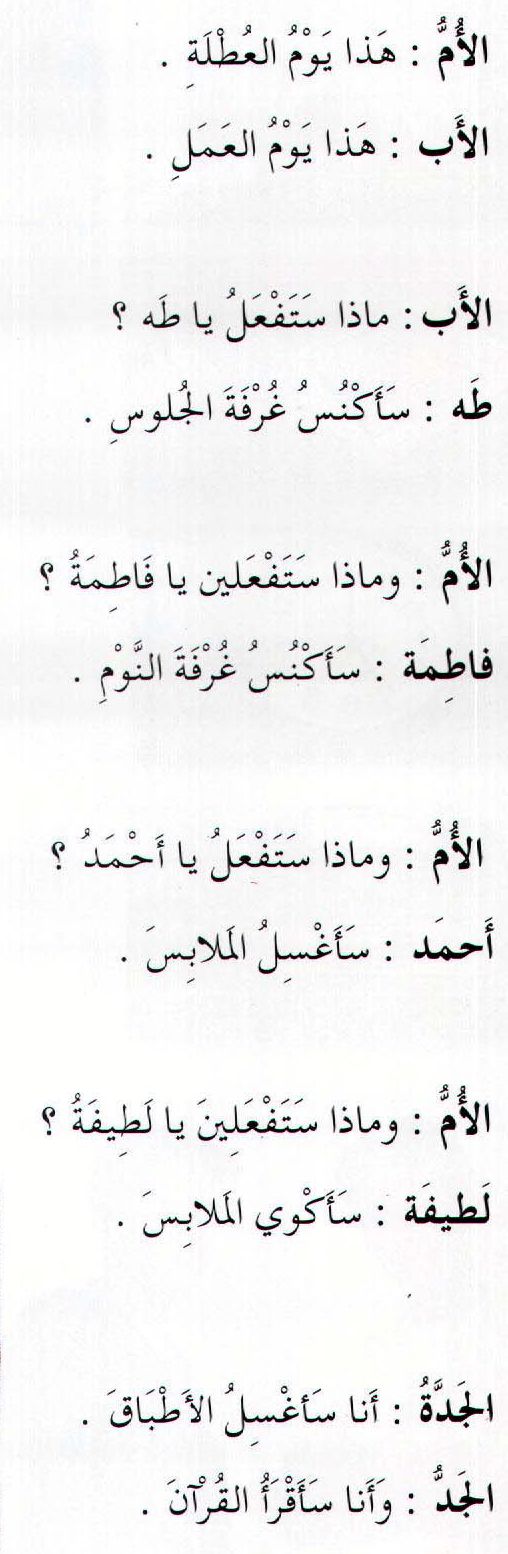 الأُمُّ : هَذا يَوْمُ العُطْلَةِ .
الأَب : هَذا يَوْمُ العَمَلِ .
الأَب : ماذا سَتَفْعَلُ يا طَه ؟
طَه : سَأَكْنُسُ غُرْفَةَ الجُلوسِ .
الأُمُّ : وماذا سَتَفْعَلين يا فَاطِمَةُ ؟
فاطِمَة : سَأَكْنُسُ غُرْفَةَ النَّوْمِ .
الأُمُّ : وماذا سَتَفْعَلُ يا أَحْمَدُ ؟
أَحمَد : سَأَغْسِلُ المَلابِسَ .
الأُمُّ : وماذا سَتَفْعَلِينَ يا لَطِيفَةُ ؟
لَطيفَة : سَأَكْوي المَلابِسَ .
الجَدَّةُ : أَنا سَأغْسِلُ الأَطْبَاقَ .
الجَدُّ : وَأَنا سَأَقْرَأُ القُرْآنَ .